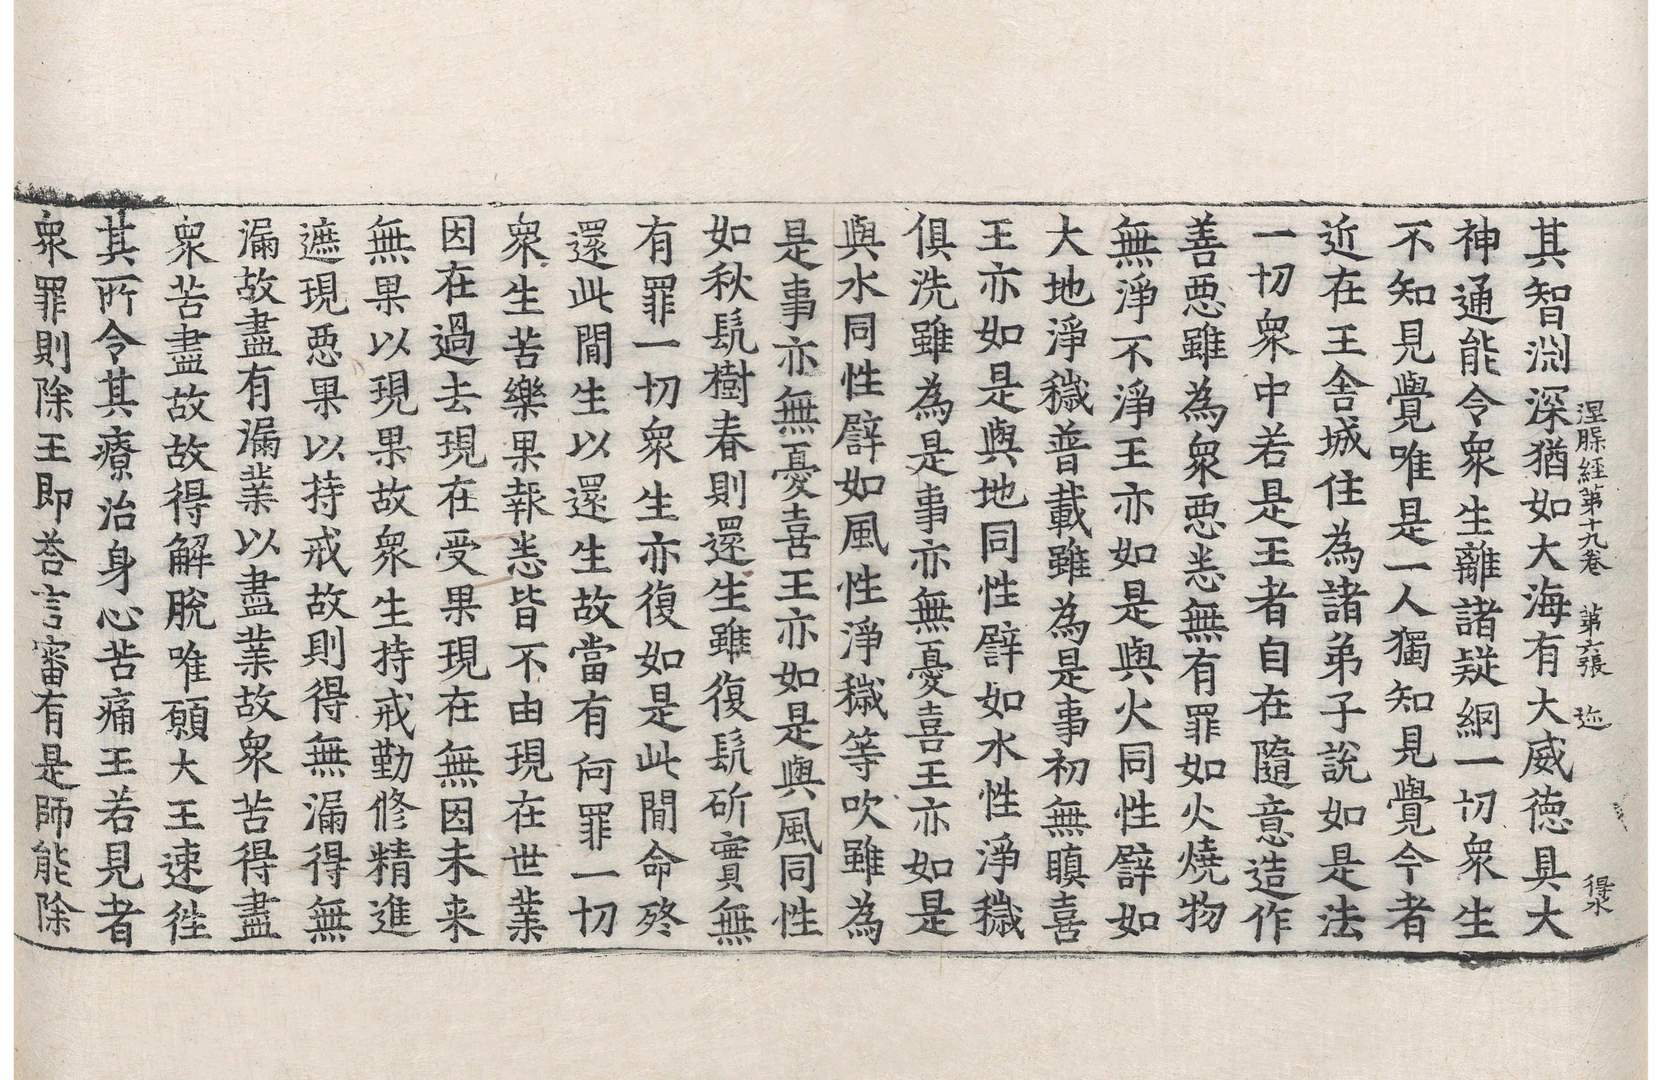 涅槃經第十九卷　第六張　迩　得水
其智淵深猶如大海有大威德具大
神通能令衆生離諸疑網一切衆生
不知見覺唯是一人獨知見覺今者
近在王舍城住為諸弟子說如是法
一切衆中若是王者自在隨意造作
善惡雖為衆惡悉無有罪如火燒物
無淨不淨王亦如是與火同性譬如
大地淨穢普載雖為是事初無瞋喜
王亦如是與地同性譬如水性淨穢
俱洗雖為是事亦無憂喜王亦如是
與水同性譬如風性淨穢等吹雖為
是事亦無憂喜王亦如是與風同性
如秋髡樹春則還生雖復髡斫實無
有罪一切衆生亦復如是此閒命終
還此閒生以還生故當有何罪一切
衆生苦樂果報悉皆不由現在世業
因在過去現在受果現在無因未来
無果以現果故衆生持戒勤修精進
遮現惡果以持戒故則得無漏得無
漏故盡有漏業以盡業故衆苦得盡
衆苦盡故故得解脫唯願大王速往
其所令其療治身心苦痛王若見者
衆罪則除王即荅言審有是師能除